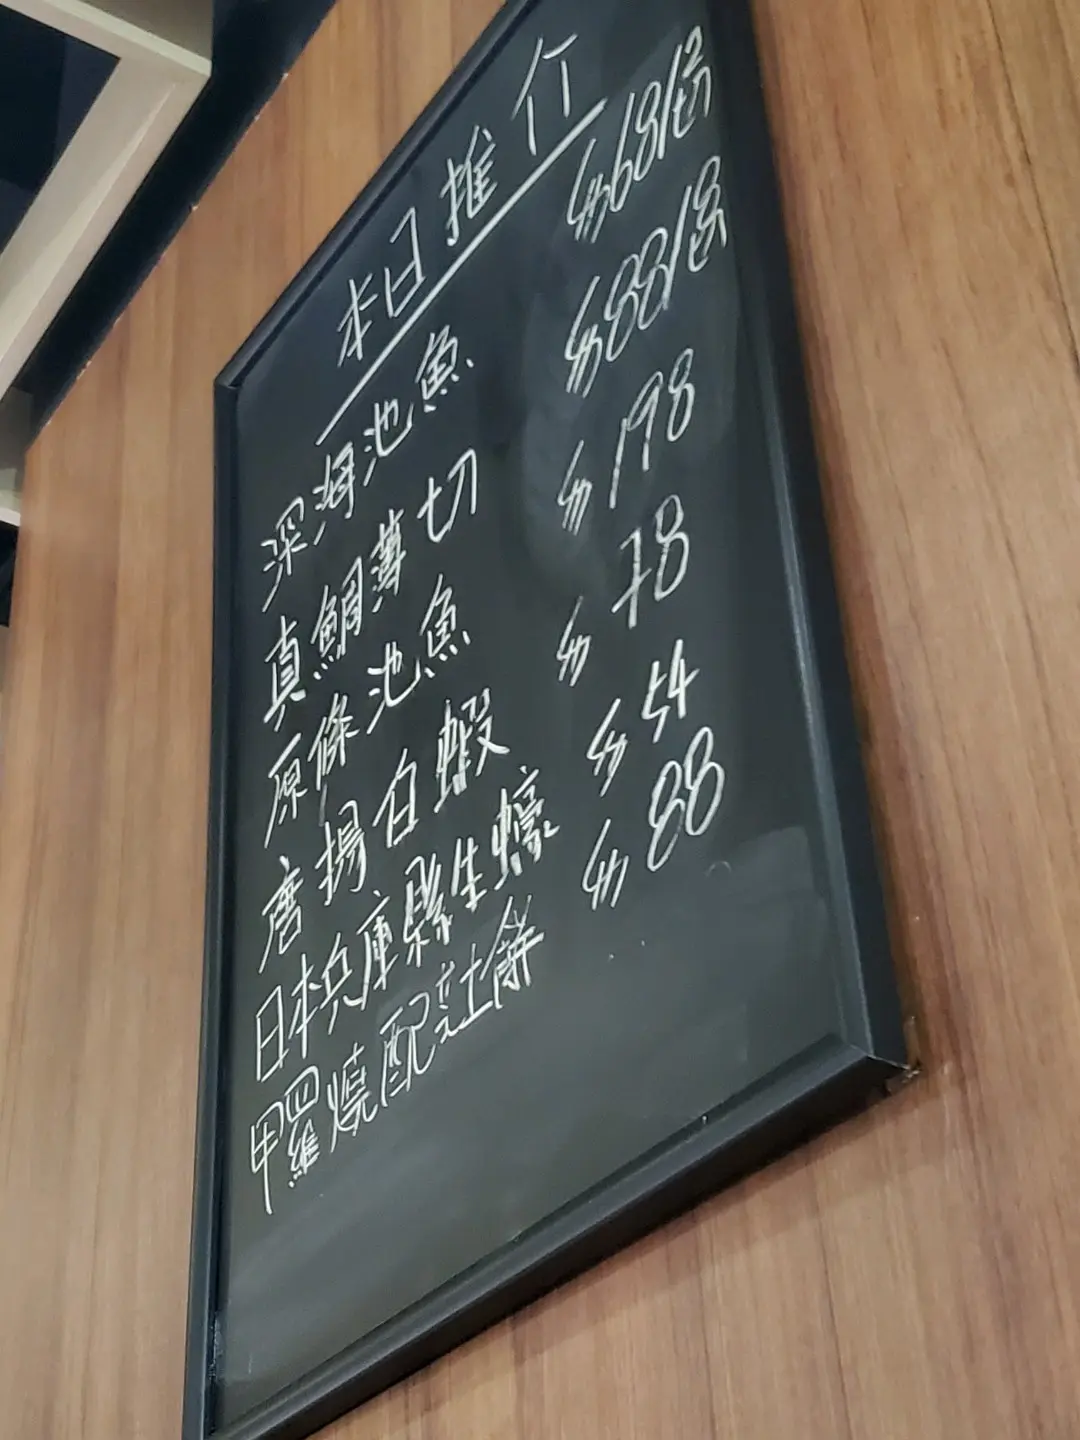 本日推介
深海池魚 $68/2切
真鯛薄切 $88/8片
原條池魚 $198
唐揚白蝦 $78
日本兵庫縣生蠔 $54
甲羅燒配多士餅 $88